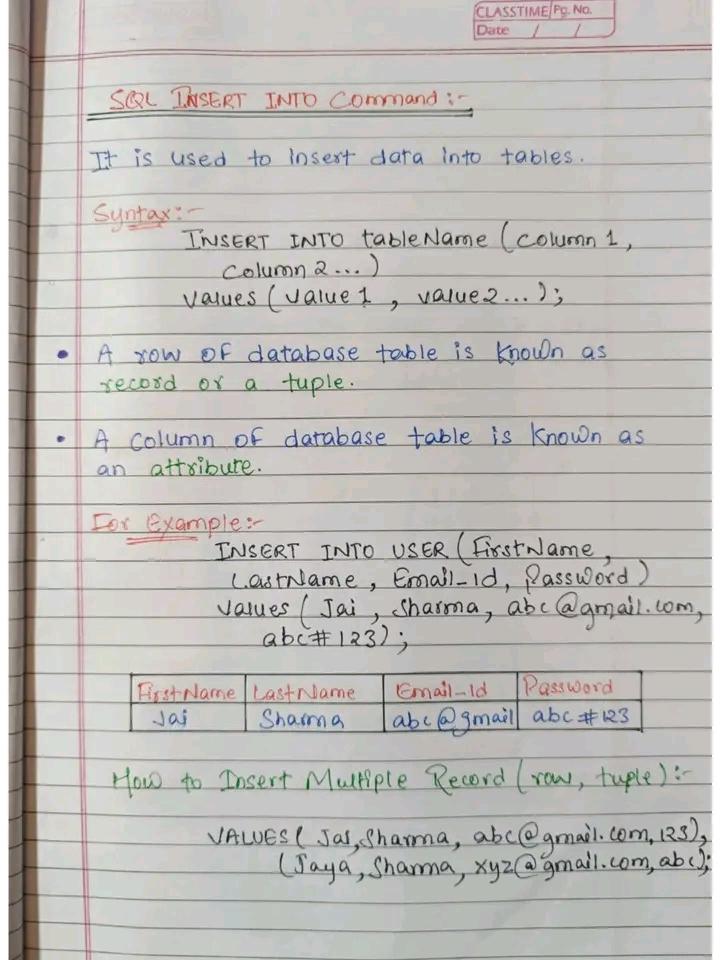 CLASSTIME Pg. No.
Date / /
SQL INSERT INTO Command :-
It is used to insert data into tables.
Syntax:-
INSERT INTO tableName (column 1,
column 2...)
values (value 1, value 2...);
• A row of database table is known as
record or a tuple.
• A column of database table is known as
an attribute.
For Example:-
INSERT INTO USER (FirstName,
LastName, Email-Id, Password)
values (Jai, Sharma, abc@gmail.com,
abc#123);
FirstName LastName Email-Id Password
Jai Sharma abc@gmail abc#123
How to Insert Multiple Record (row, tuple):-
VALUES( Jai,Sharma, abc@gmail.com,123),
(Jaya,Sharma, xyz@gmail.com,abc);